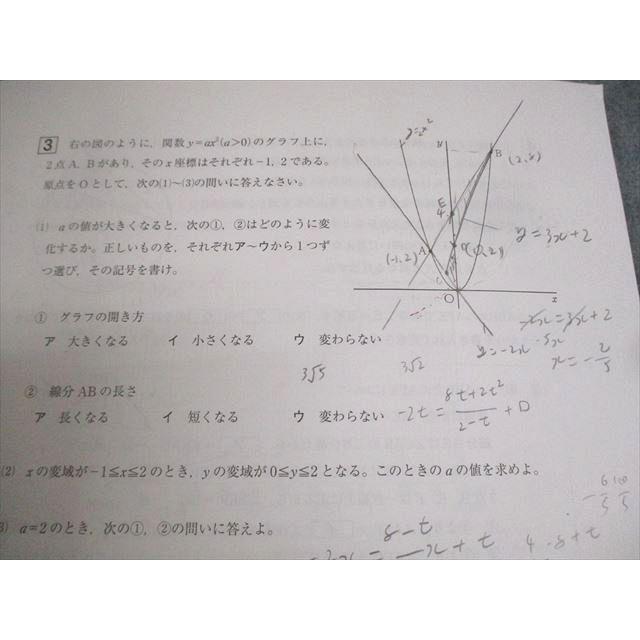 3 右の図のように，関数y=ax²(a>0)のグラフ上に，
2点A，Bがあり，そのx座標はそれぞれ-1，2である。
原点をOとして，次の(1)〜(3)の問いに答えなさい。
(1) aの値が大きくなると，次の①，②はどのように変
化するか。正しいものを，それぞれア〜ウから1つず
つ選び，その記号を書け。
① グラフの開き方
ア 大きくなる イ 小さくなる ウ 変わらない
3√5 3√2
② 線分ABの長さ
ア 長くなる イ 短くなる ウ 変わらない
(2) xの変域が-1≦x≦2のとき，yの変域が0≦y≦2となる。このときのaの値を求めよ。
3) a=2のとき，次の①，②の問いに答えよ。
B
E
4
A
(-1,2)
O
x
y=3x+2
y=-2x
x=-2/5
-2t = 8t+2t²/2-t + D
8-t